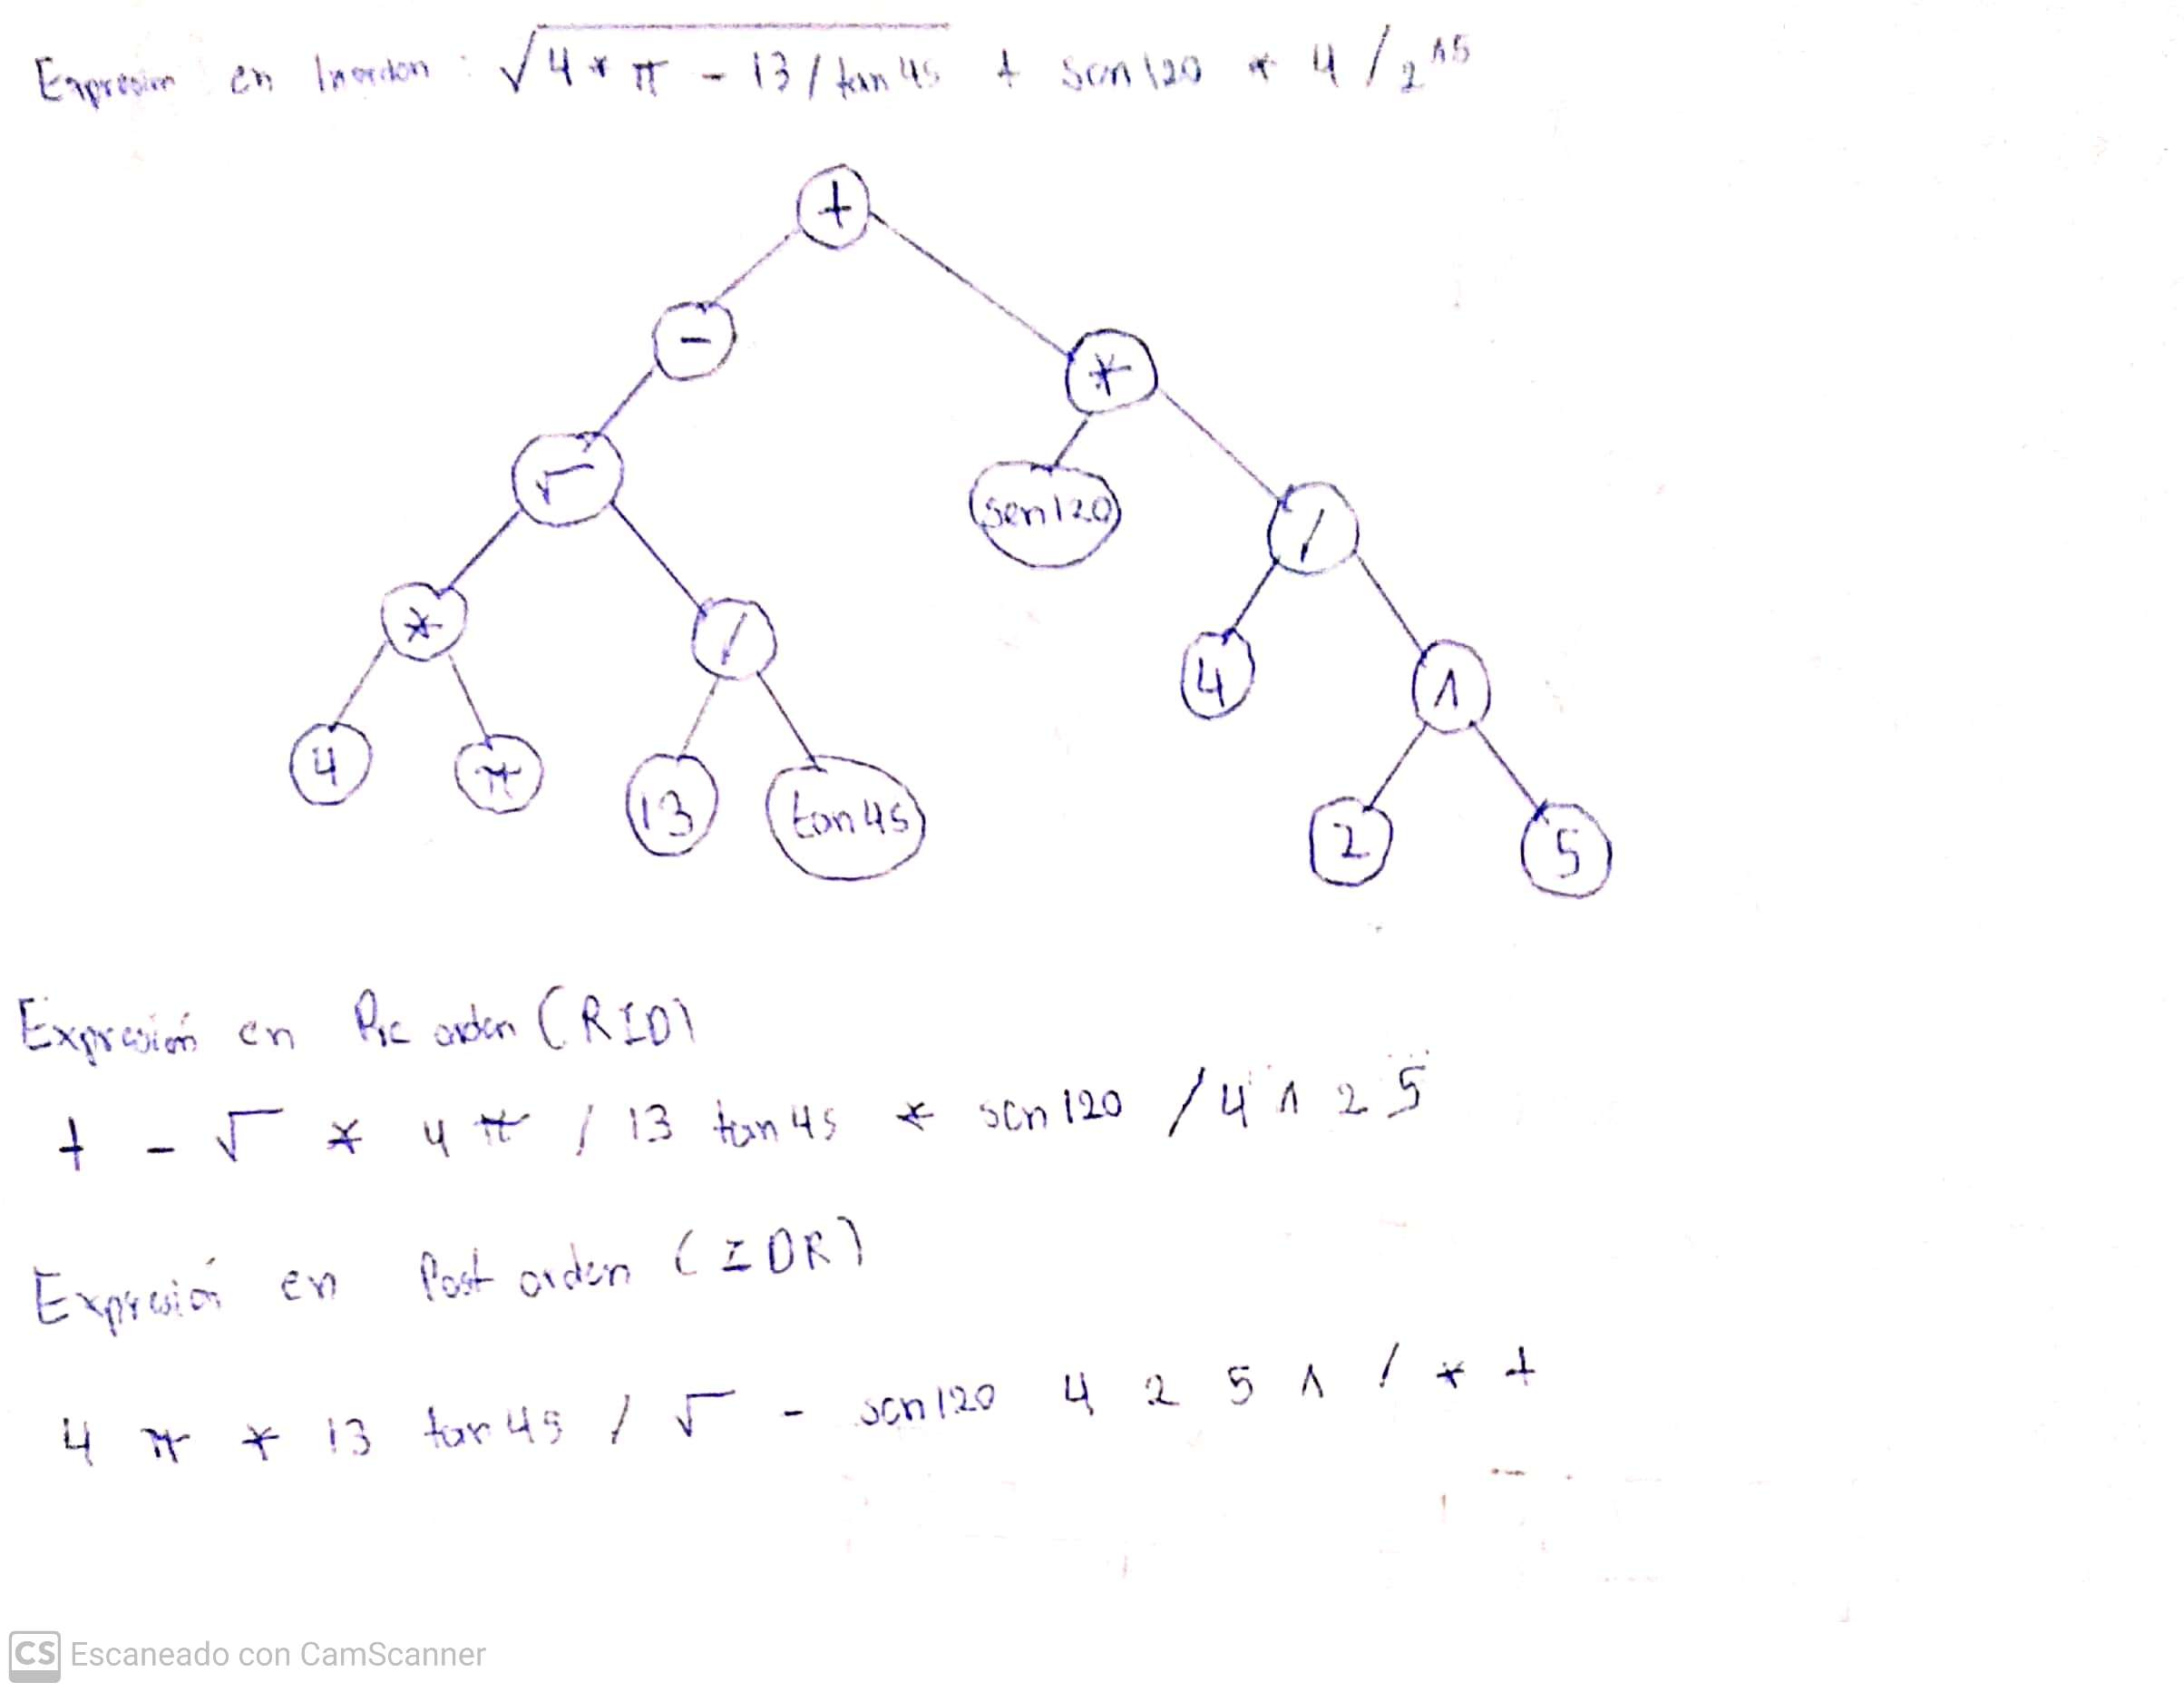 Expresión en Inorden : √4 * π - 13 / tan 45 + sen 120 * 4 / 2 ^5
+
-
*
√
sen120
/
*
/
4
^
4
π
13
tan45
2
5
Expresión en Pre orden (RID)
+ - √ * 4 π / 13 tan 45 * sen 120 / 4 ^ 2 5
Expresión en Post orden (IDR)
4 π * 13 tan 45 / √ - sen120 4 2 5 ^ / * +
CS Escaneado con CamScanner